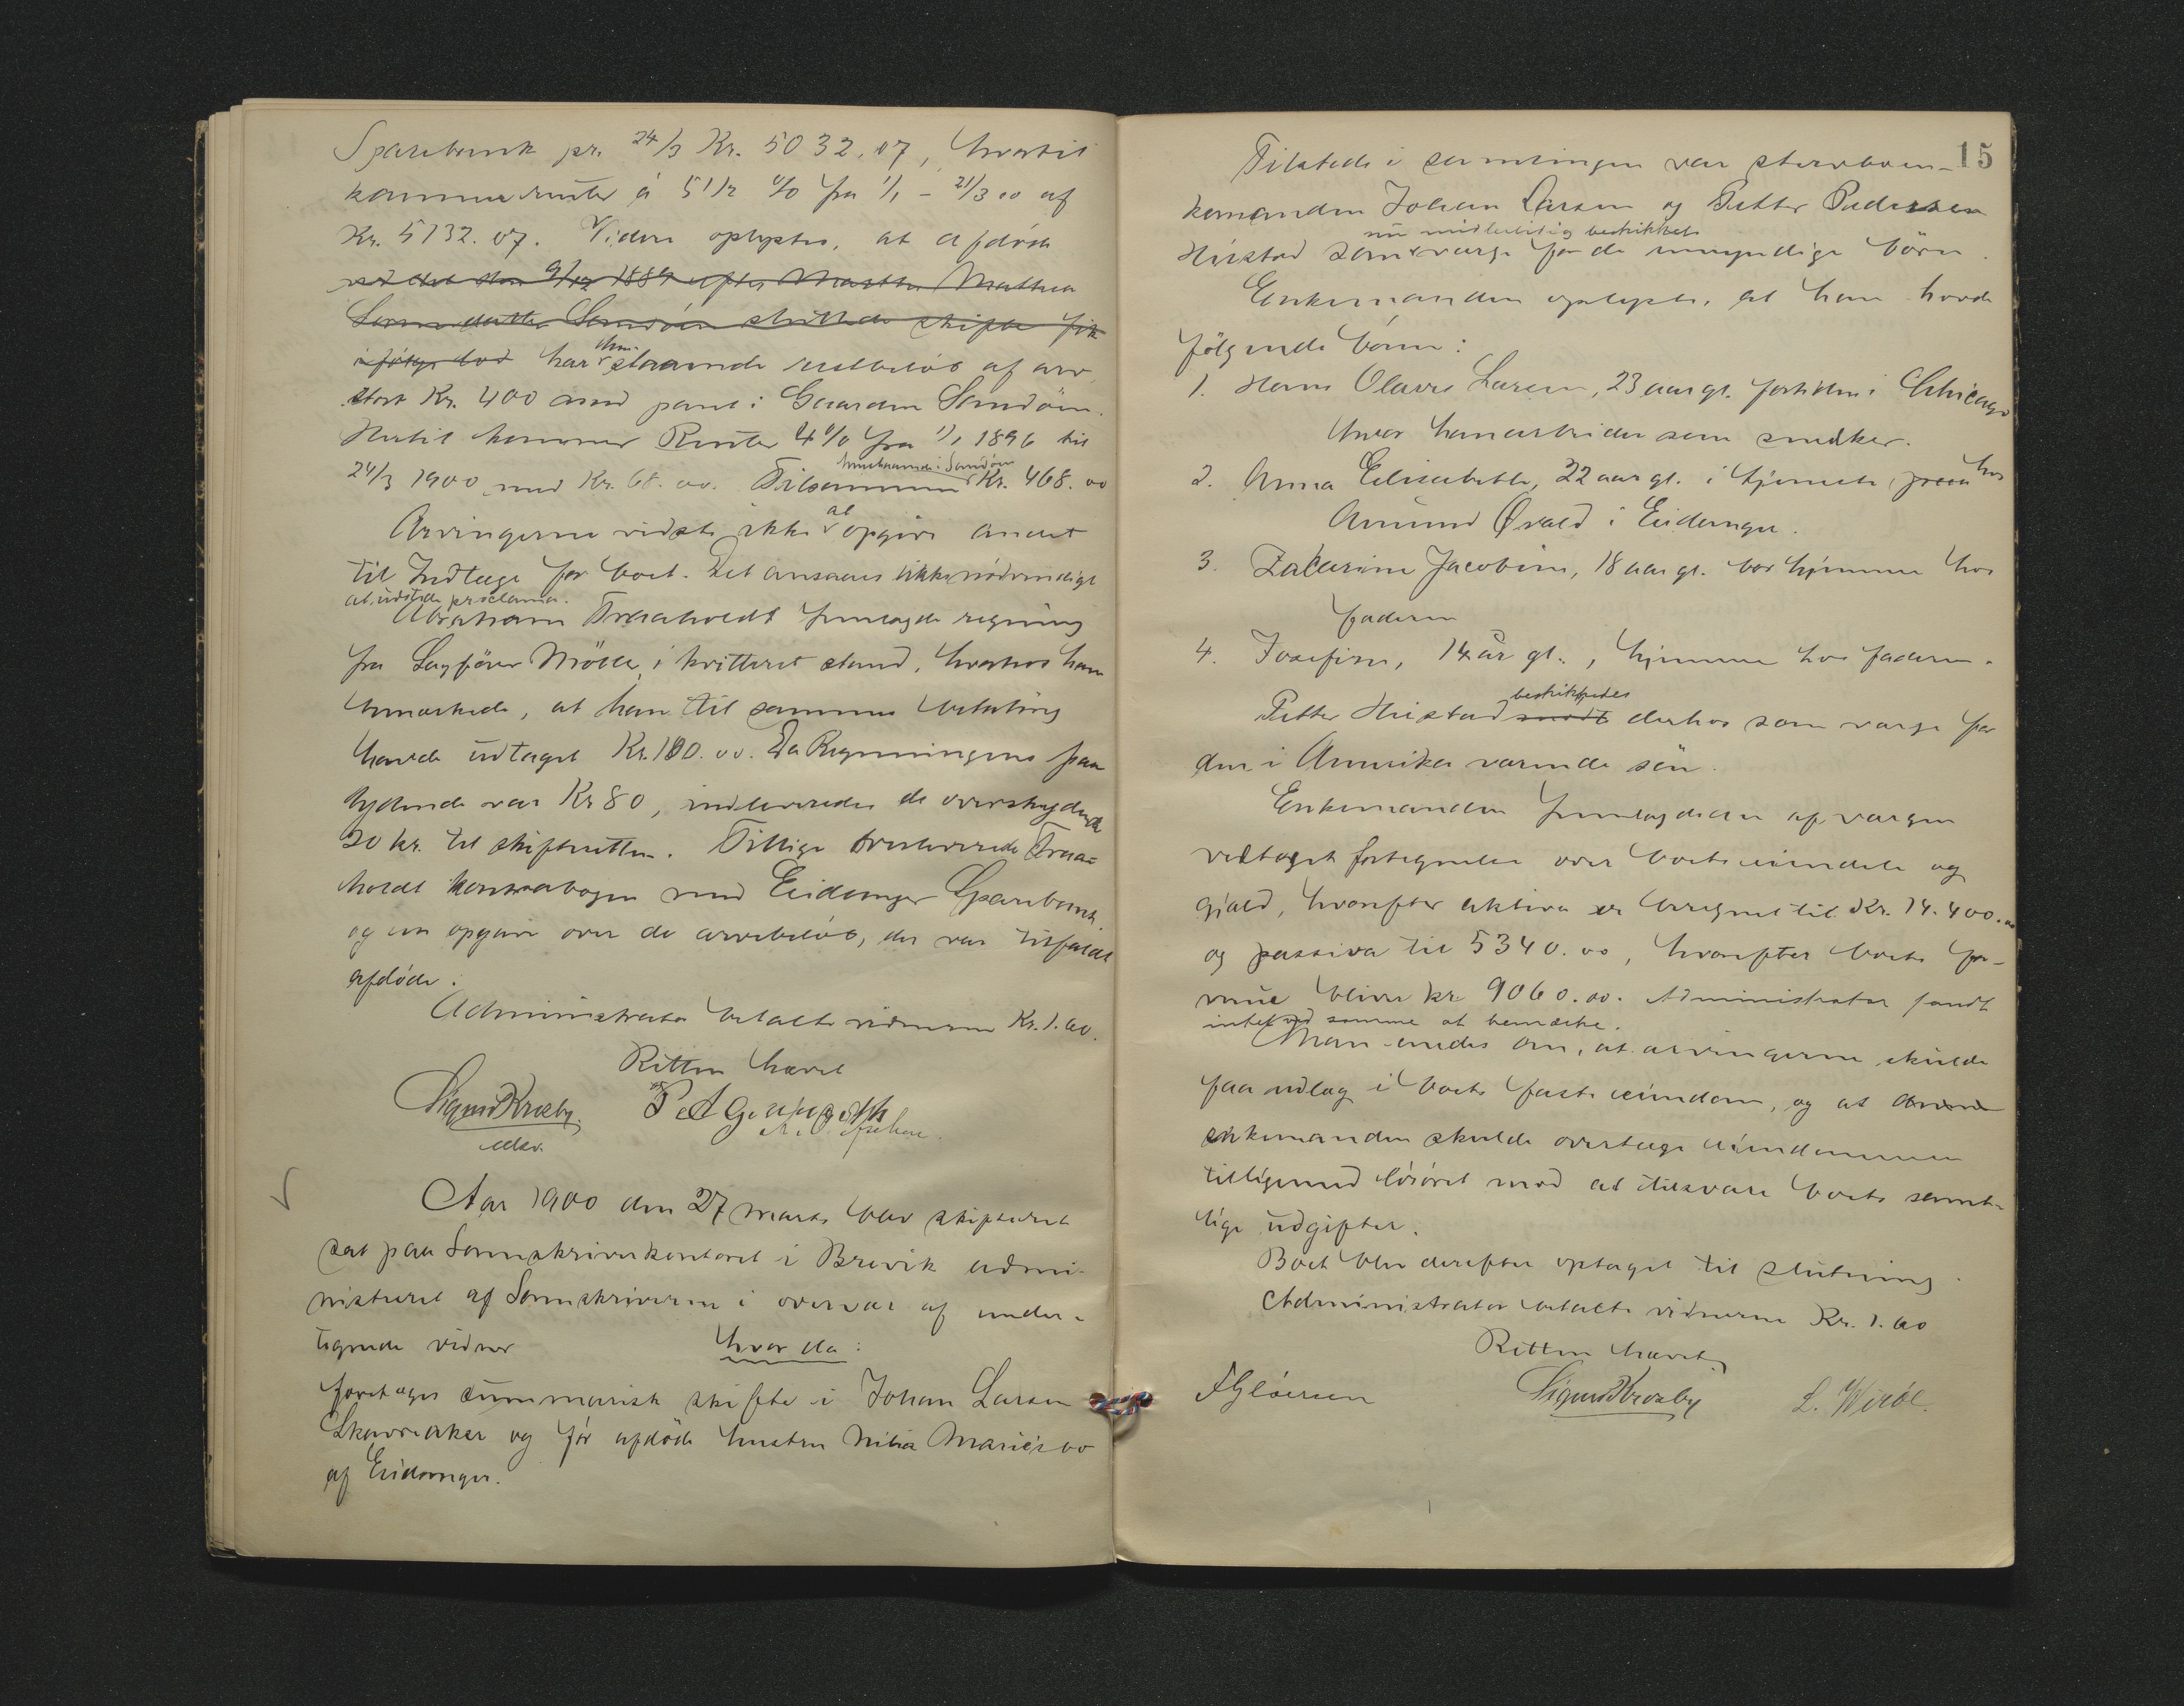 Sparebank pr. 24/3 Kr. 5032.07, hvortil
kommer renter á 5 1/2 % fra 1/1 - 21/3 00 af
Kr. 5132.07. Videre oplystes, at afdøde
ved det den 9/12 1889 efter Marthe Mathea
Sørensdatter Sandøen sluttede skifte fik
i følge lod har dher staaende restbeløb af arv,
stort Kr. 400 med pant i Gaarden Sandøen.
Hertil kommer Renter 4 % fra 1/1 1896 til
indestaaende i Sandøen
24/3 1900 med Kr. 68.00. Tilsammen Kr. 468.00
Arvingerne vidste ikke at opgive andet
til Indtægt for boet. Det ansaaes ikke nødvendigt
at udstede proclama.
Abraham Traaholdt fremlagde regning
fra Sagfører Møller i kvitteret stand, hvorhos han
bemærkede, at han til sammes betaling
havde udtaget Kr. 100.00. Da Regningens paa-
lydende var Kr 80, indleveredes de overskydende
20 kr. til skifteretten. Tillige overleverede Traa-
holdt kontrabogen med Eidanger Sparebank
og en opgave over de arvebeløb, der var tilfaldt
afdøde.
Administrator betalte vidnerne Kr. 1.60.
Retten hævet
Sigurd Kræby.
P. A. Grungseth
Aar 1900 den 27 marts blev skifteret
sat paa Sorenskriverkontoret i Brevik admi-
nistreret af Sorenskriveren i overvær af under-
tegnede vidner
hvor da:
foretoges summarisk skifte i Johan Larsen
Skavraaker og før afdøde hustru Nilia Maries bo
af Eidanger.
15
Tilstede i samlingen var stervboen-
kemanden Johan Larsen og Petter Pedersen
nu midlertidig beskikket
Heistad som værge for de umyndige børn.
Enkemanden oplyste, at han havde
følgende børn:
1. Hans Olaves Larsen, 23 aar gl. fortiden i Chicago
hvor han arbeider som snedker.
2. Anna Elisabeth, 22 aar gl. i tjeneste paa hos
Amund Øvald i Eidanger.
3. Zakarine Jacobine, 18 aar gl. bor hjemme hos
faderen
4. Josefine, 14 år gl., hjemme hos faderen.
beskikkedes
Petter Heistad mødte derhos som værge for
den i Amerika værende søn.
Enkemanden fremlagde en af værgen
vedtaget fortegnelse over boets eiendele og
gjæld, hvorefter aktiva er beregnet til Kr. 14.400.00
og passiva til 5340.00, hvorefter boets for-
mue bliver kr. 9060.00. Administrator fandt
intet ved samme at bemærke.
Man enedes om, at arvingerne skulde
faa udlæg i boets faste eiendom, og at
enkemanden skulde overtage eiendommen
tilligemed løsøret mod at tilsvare boets samt-
lige udgifter.
Boet blev derefter optaget til slutning.
Administrator betalte vidnerne Kr. 1.60
Retten hævet
F Gløersen
Sigurd Kræby
L. Wirøe.